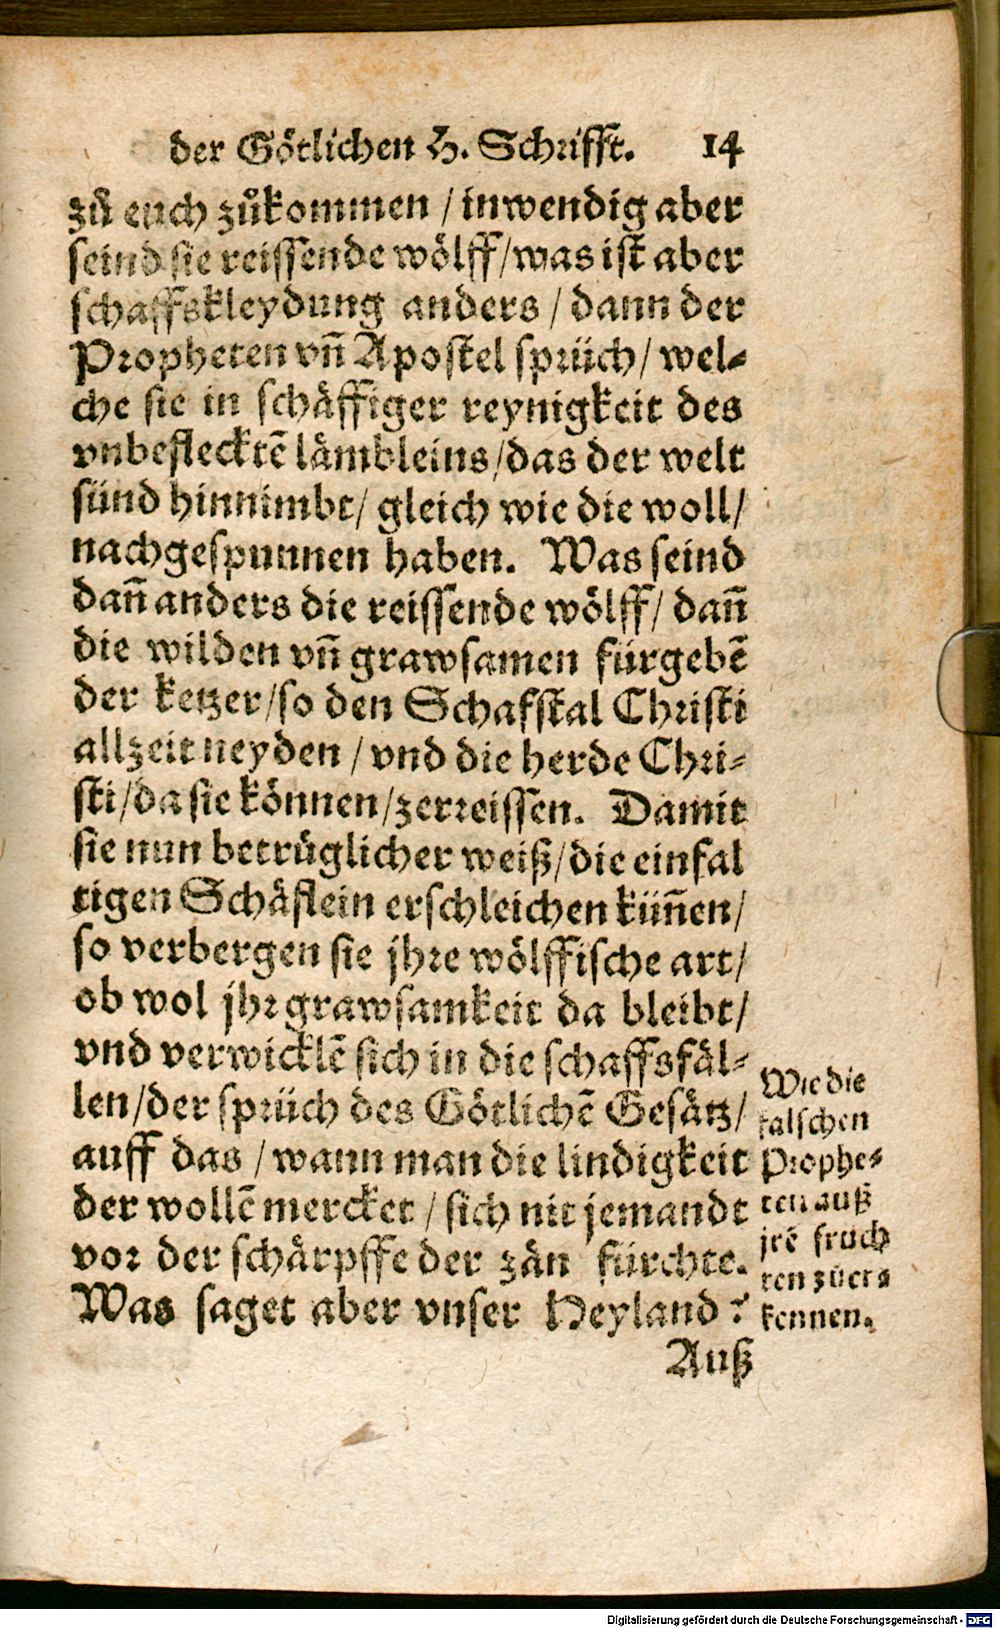 der Götlichen H. Schrifft. 14
zů euch zůkommen / inwendig aber
seind sie reissende wölff/was ist aber
schaffskleydung anders / dann der
Propheten vñ Apostel sprüch/ wel-
che sie in schäffiger reynigkeit des
vnbeflecktẽ lämbleins/das der welt
sünd hinnimbt/ gleich wie die woll/
nachgespunnen haben. Was seind
dañ anders die reissende wölff/ dañ
die wilden vñ grawsamen fürgebẽ
der ketzer/so den Schafstal Christi
allzeit neyden / vnd die herde Chri-
sti/da sie können/zerreissen. Damit
sie nun betrüglicher weiß/die einfal
tigen Schäflein erschleichen küñen/
so verbergen sie jhre wölffische art/
ob wol jhr grawsamkeit da bleibt/
vnd verwicklẽ sich in die schaffsfäl-
len/der sprüch des Götlichẽ Gesätz/
auff das / wann man die lindigkeit
der wollẽ mercket / sich nit jemandt
vor der schärpffe der zän fürchte.
Was saget aber vnser Heyland?
Auß
Wie die
falschen
Prophe-
ten auß
jrẽ früch
ten zůer-
kennen.
Digitalisierung gefördert durch die Deutsche Forschungsgemeinschaft - DFG